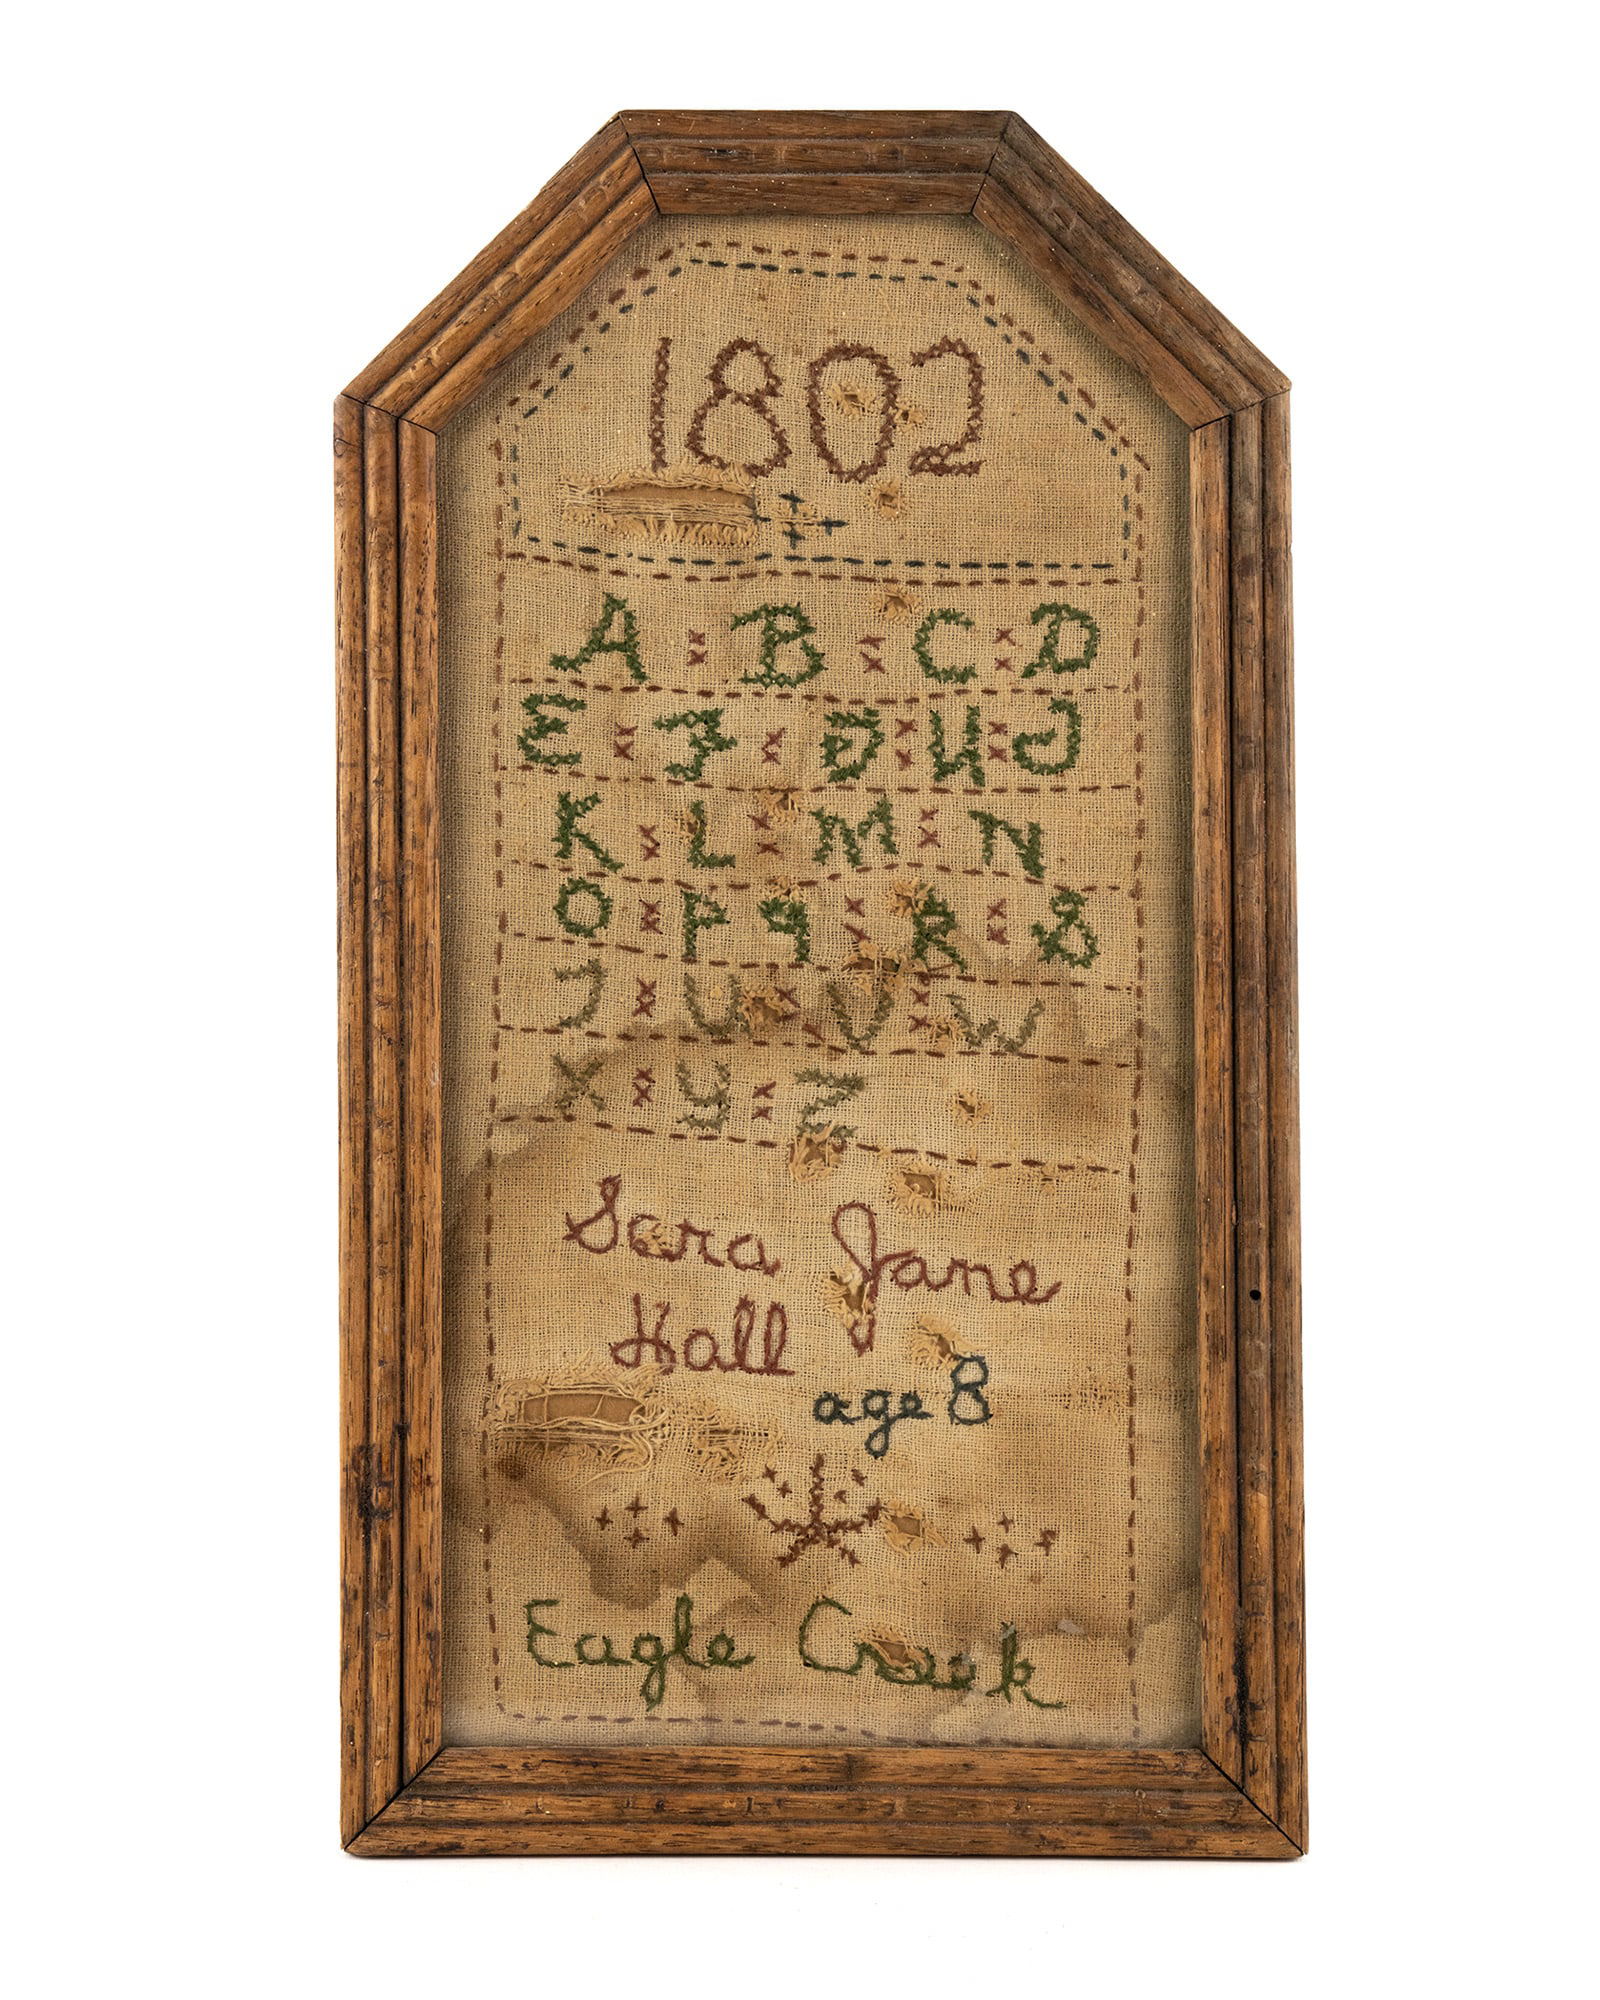 1802
A : B : C : D
E : F : G : H : J
K : L : M : N
O : P q : R : S
T : U : V : W
X : Y : Z
Sara Jane
Hall
age 8
Eagle Creek